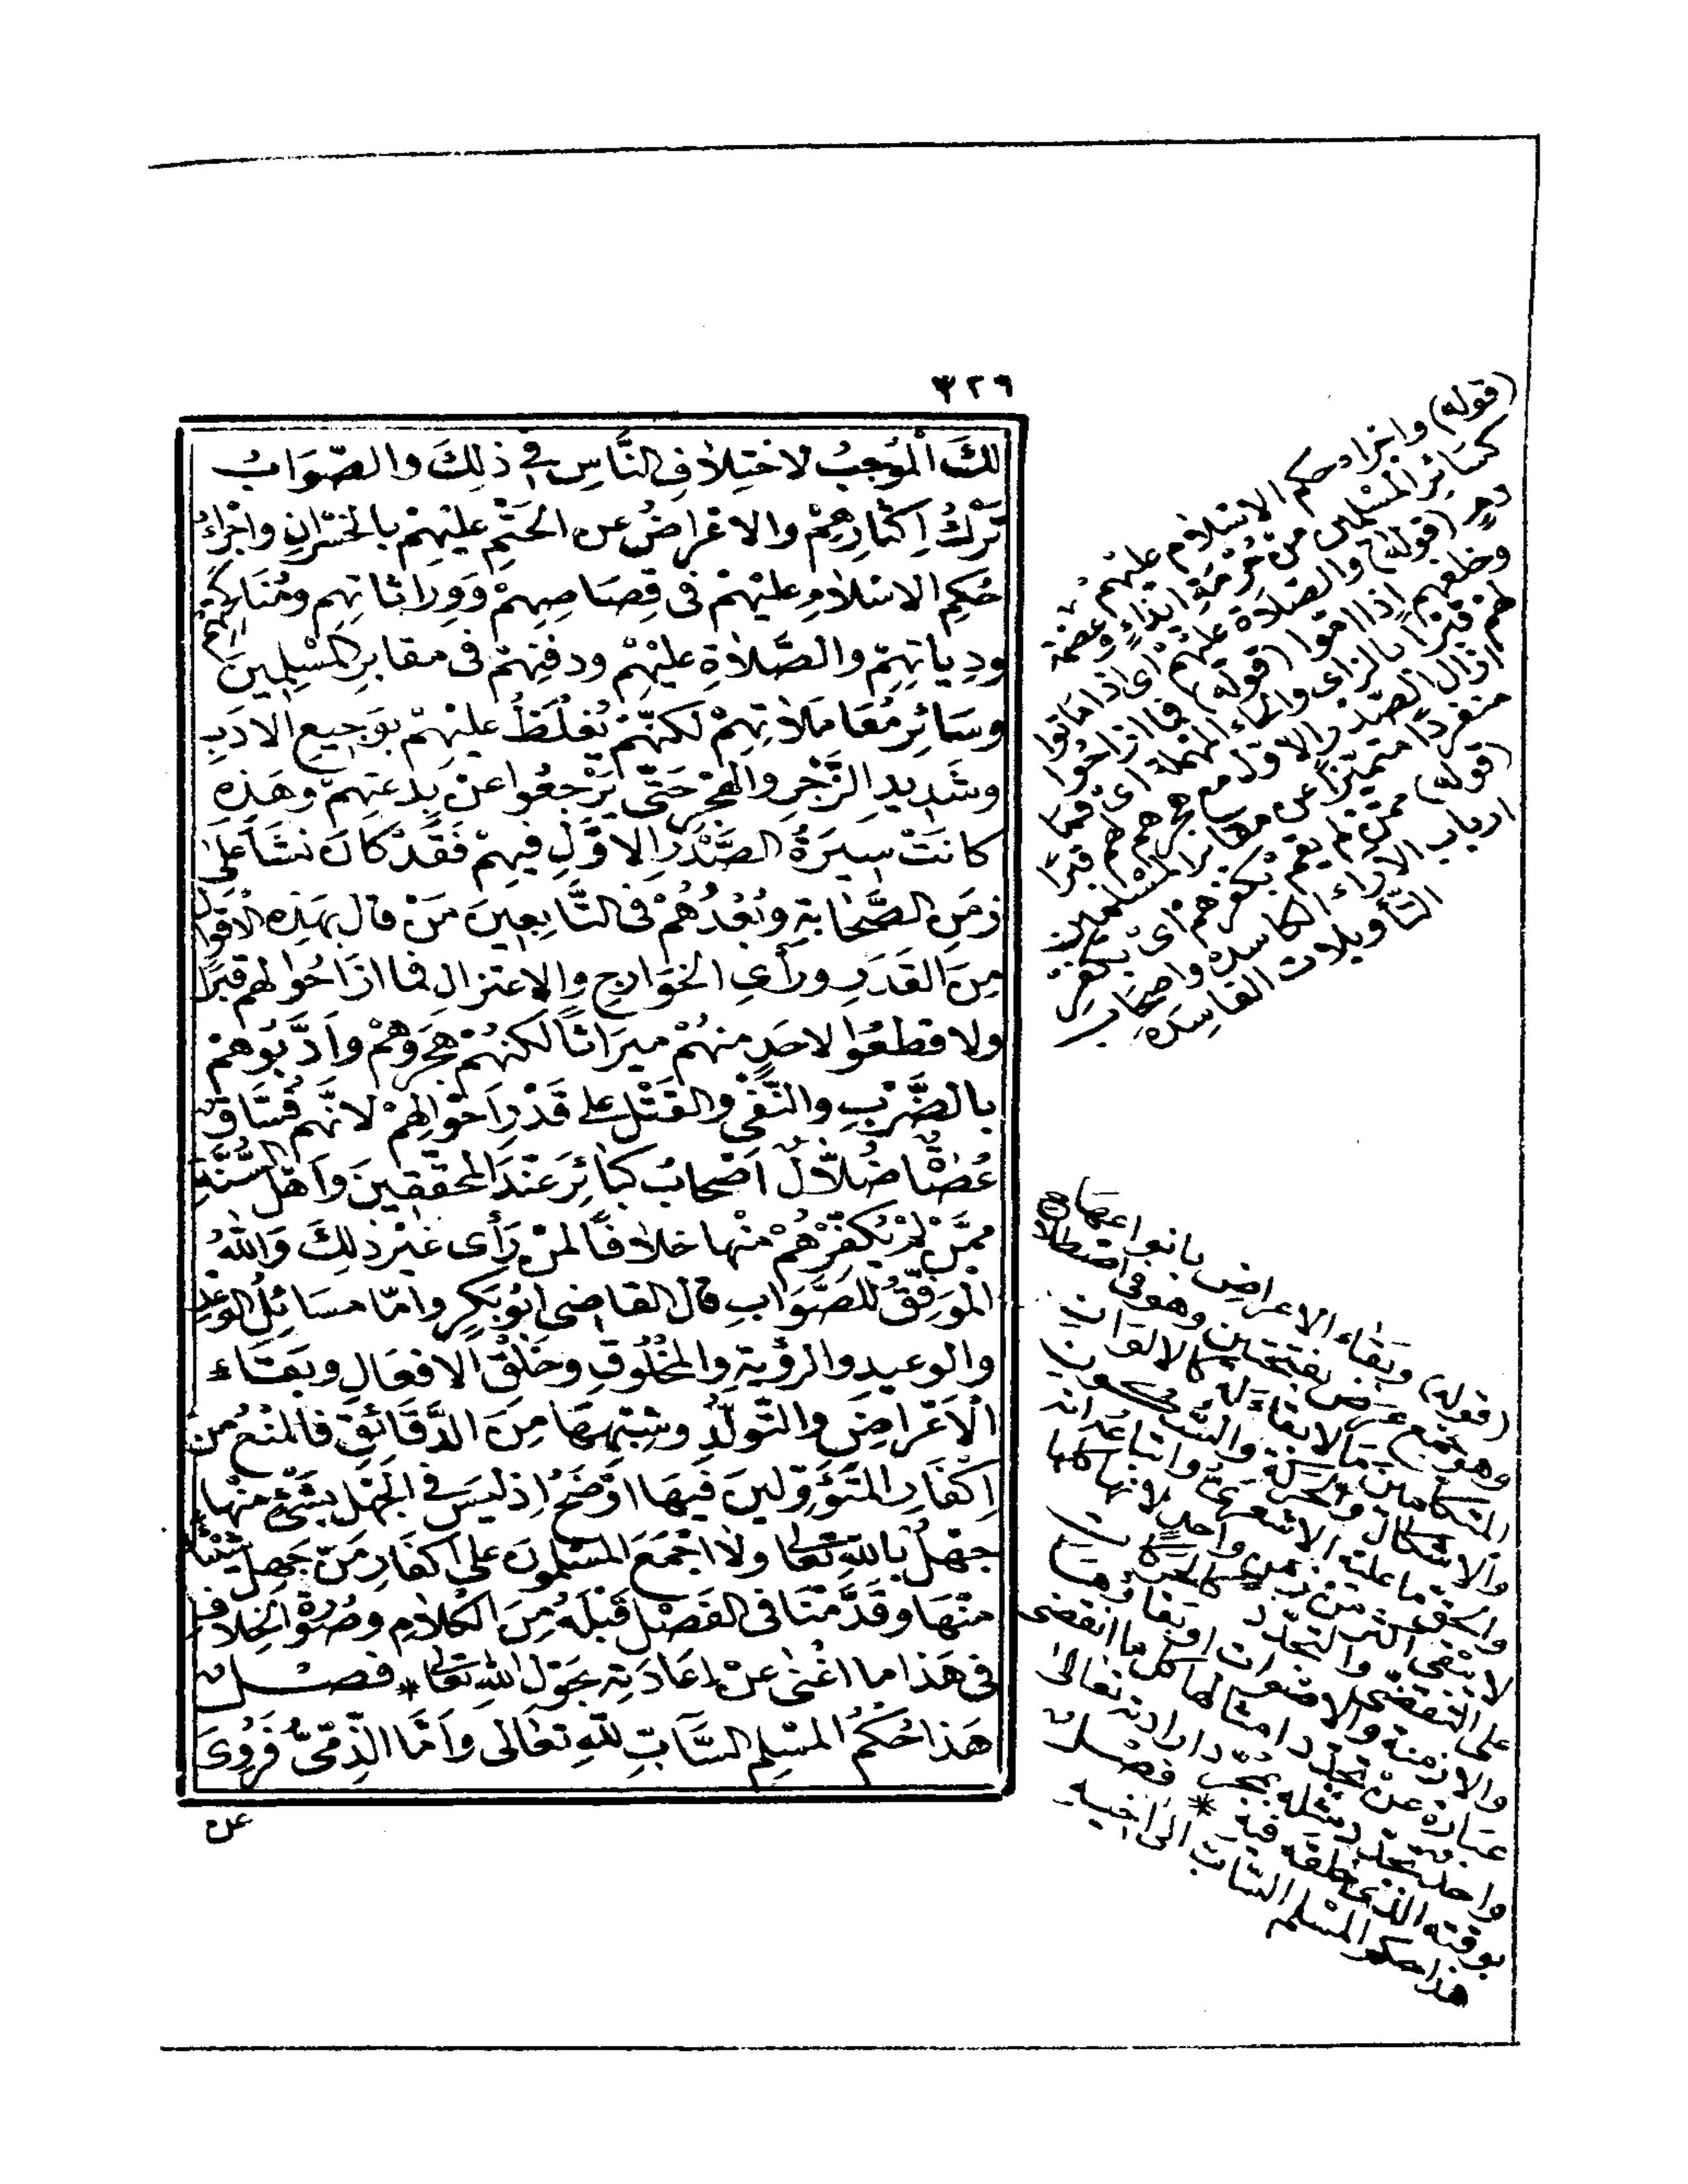 ٣٢٦
لَكَ الْمُوجِبُ لاخْتِلاَفِ النَّاسِ فِي ذٰلِكَ وَالصَّوَابُ
تَرْكُ اِكْفَارِهِمْ والاعْرَاضُ عن الحَتْمِ عليهِمْ بالخُسْرَانِ واِجْرَاءُ
حُكْمِ الاسْلاَمِ عليْهِمْ فى قِصَاصِهِمْ وَوِرَاثَاتِهِم ومُنَاكَحَتِهِمْ
ودِيَاتِهِمْ والصَّلاَةِ عليْهِمْ ودَفْنِهِمْ فى مقابرِ المُسْلِمِينَ
وسَائِرِ مُعَامَلاَتِهِمْ لكنَّهُمْ يُغَلَّظُ عليْهِمْ بوَجِيعِ الادَبِ
وشَدِيدِ الزَّجْرِ والهَجْرِ حَتَّى يَرْجِعُوا عنْ بِدْعَتِهِمْ وهَذِهِ
كانَتْ سِيرَةُ الصَّدْرِ الاوَّلِ فيهِمْ فَقَدْ كانَ نَشَأَ عَلَى
زَمَنِ الصَّحَابَةِ وبَعْدَهُمْ فى التَّابِعِينَ مَنْ قال بهَذِهِ الاقْوَالِ
مِنَ القَدَرِ ورَأىِ الخَوَارِجِ والاعتزالِ فما ازَاحُوا لهم قَبْرًا
ولا قطَعُوا لاحَدٍ منهُمْ ميرَاثًا لكنهُمْ هَجَرُوهُمْ وأَدَّبُوهُمْ
بالضَّرْبِ والنَّفْىِ والقَتْلِ على قَدْرِ احْوَالِهِمْ لانَّهُم فُسَّاقٌ
عُصَاةٌ ضُلاَّلٌ اَصْحَابُ كبَائِرَ عِنْدَ المحقّقِينَ وَاَهْلِ السُّنَّةِ
مِمَّنْ لَمْ يُكَفِّرْهُمْ منْها خلاَفًا لمَنْ رَأى غَيْرَ ذلِكَ وَاللهُ
المُوَفِّقُ للصَّوَابِ قال القاضى ابُو بَكرٍ وامّا مسَائِلُ الوَعْدِ
والوعيدِ والرؤيةِ والمَخْلُوقِ وخَلْقِ الافعَالِ وبَقَاء
الْاَعْرَاضِ والتَّوَلُّدِ وشِبْهِهَا مِنَ الدَّقَائِقِ فالمَنْعُ من
اِكْفَارِ المُتَؤَوِّلِينَ فيهَا اوْضَحُ اِذْ ليسَ فى الجَهْلِ بشَىْءٍ منْها
جَهْلٌ باللهِ تَعَالى ولاَ اجْمَعَ المسْلمونَ على اكفارِ مَنْ جَهِلَ شَيْئًا
منْهَا وقَدَّمْنَا فى الفَصْلِ قَبْلَهُ مِنَ الكلامِ وصُورَةِ الخلافِ
فى هَذَا ما اغْنَى عنْ اِعَادَتِهِ بحَوْلِ اللهِ تعالى * فصــل
هَذَا حُكْمُ المسْلمِ السَّابِّ لِلّهِ تعَالى وَأَمَّا الذِّمِّىُّ فَرُوِىَ
عن
(قوله) واجراء حكم الاسلام عليهم
كسائر المسلمين من حُرمَةِ ايذاءٍ وعصمة
دمٍ (قوله) والصلاة عليهم اى اذا ماتوا
(قوله) فما ازاحوا
لهم قبرًا بالزاى والحاء المهملة اى فما
ازال الصدر الاول مع هجرهم لهم قبرًا
منفردًا متميّزًا عن مقابر المسلمين
(قوله) ممن لم يكفرهم اى بتكفير
ارباب الآراء الكاسدة واصحاب
التأويلات الفاسدة
(قوله) وبقاء الاعراض بانواعها
وهو جمع عرض بفتحتين وهو فى اصطلاح
المتكلمين ما لا بقاء له كالالوان
والاشكال والحركة والسكون
ما عليه الاشعرى واتباعه انه
لا يبقى اكثر من زمن واحد لانها كلها
على التقضى والتجدد
عبارة عن تجدد امثالها كل ما انقضى
واحد تجدد مثله بمجرد ارادته تعالى
بوقته الذى خلقه فيه * فصــل
هذا حكم المسلم السابّ الى اخره